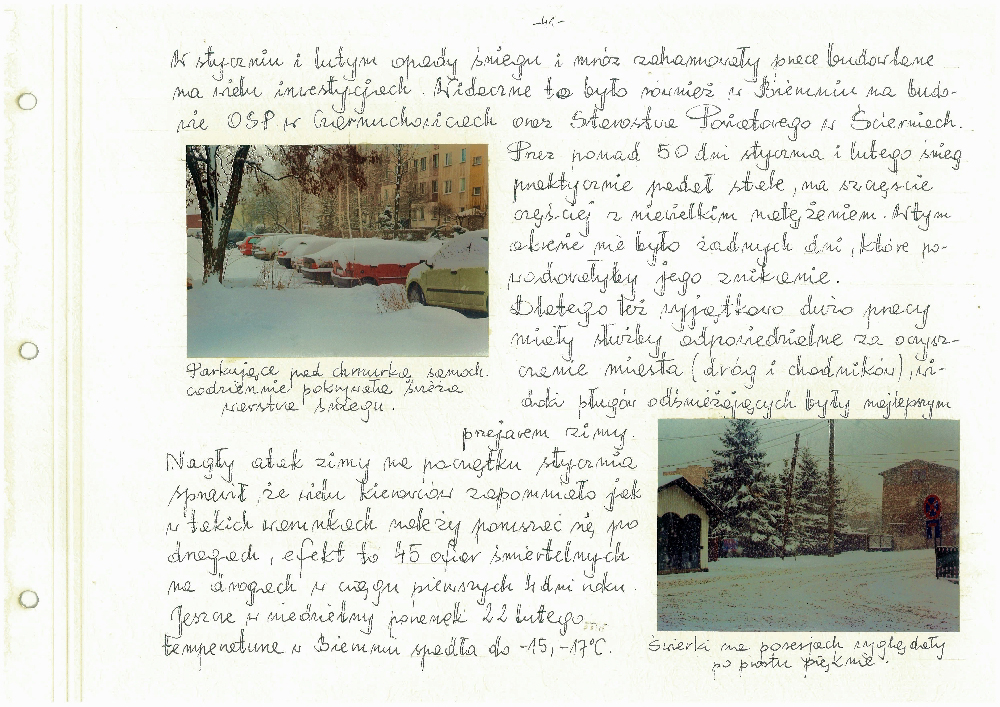 -41-
W styczniu i lutym opady śniegu i mróz zahamowały prace budowlane
na wielu inwestycjach. Widoczne to było również w Bieruniu na budo-
wie OSP w Czarnuchowicach oraz Starostwa Powiatowego w Ścierniach.
Przez ponad 50 dni stycznia i lutego śnieg
praktycznie padał stale, na szczęście
częściej z niewielkim natężeniem. W tym
okresie nie było żadnych dni, które po-
wodowałyby jego znikanie.
Dlatego też wyjątkowo dużo pracy
miały służby odpowiedzialne za oczysz-
czanie miasta (dróg i chodników), wi-
doki pługów odśnieżających były najlepszym
przejawem zimy.
Parkujące pod chmurką samoch.
codziennie pokrywała świeża
warstwa śniegu.
Nagły atak zimy na początku stycznia
sprawił, że wielu kierowców zapomniało jak
w takich warunkach należy poruszać się po
drogach, efekt to 45 ofiar śmiertelnych
na drogach w ciągu pierwszych 4 dni roku.
Jeszcze w niedzielny poranek 22 lutego
temperatura w Bieruniu spadła do -15, -17°C.
Świerki na posesjach wyglądały
po prostu pięknie.